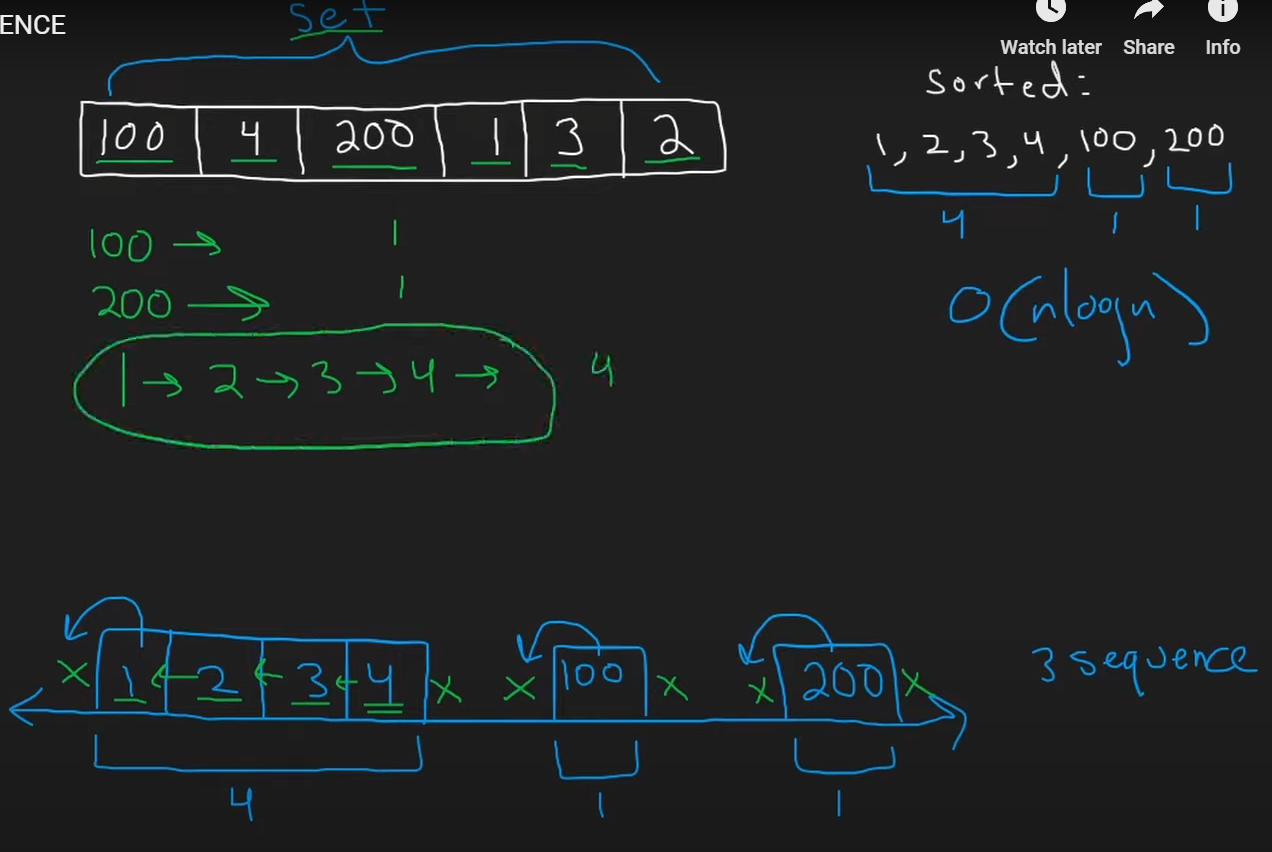 ENCE
Set
Watch later Share Info
Sorted:
100 4 200 1 3 2
1, 2, 3, 4, 100, 200
4 1 1
100 → 1
200 → 1
O(nlogn)
1 → 2 → 3 → 4 → 4
x 1 ← 2 ← 3 ← 4 x x 100 x x 200 x
3 sequence
4 1 1